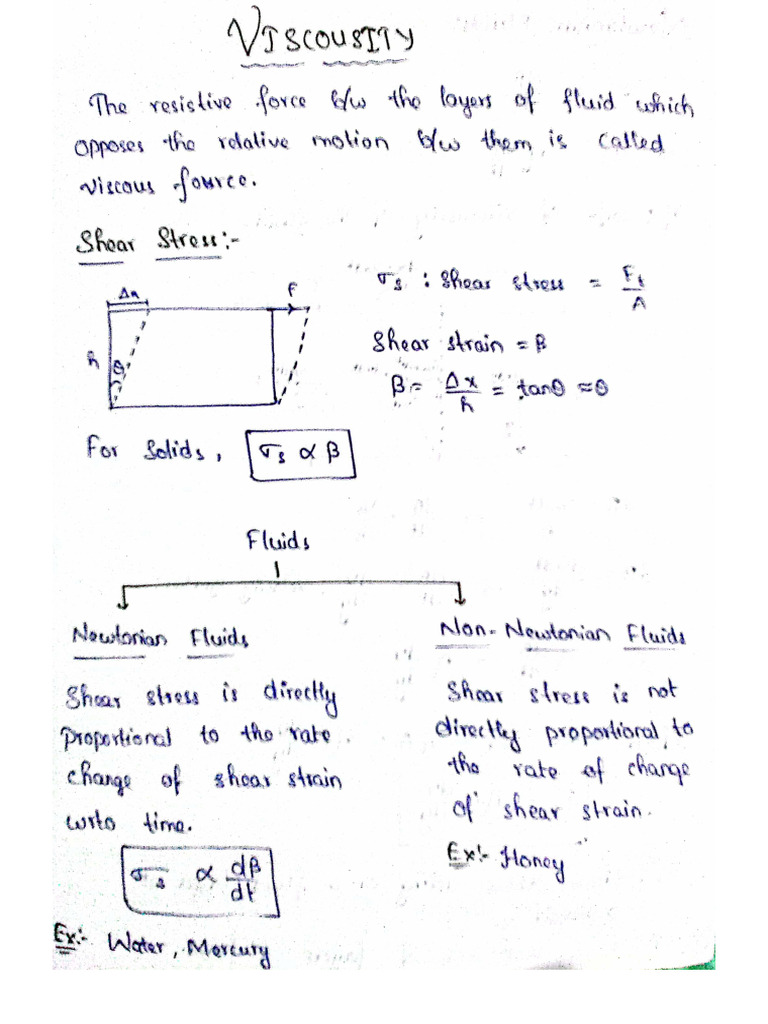 VISCOUSITY
The resistive force b/w the layers of fluid which
opposes the relative motion b/w them is called
viscous fource.
Shear Stress:-
Δx
F
h
θ
σs : Shear stress = Ft/A
Shear strain = β
β = Δx/h = tanθ ≈ θ
For Solids, σs ∝ β
Fluids
Newtonian Fluids
Shear stress is directly
proportional to the rate
change of shear strain
wrto time.
σs ∝ dβ/dt
Ex:- Water, Mercury
Non-Newtonian Fluids
Shear stress is not
directly proportional to
the rate of change
of shear strain.
Ex:- Honey